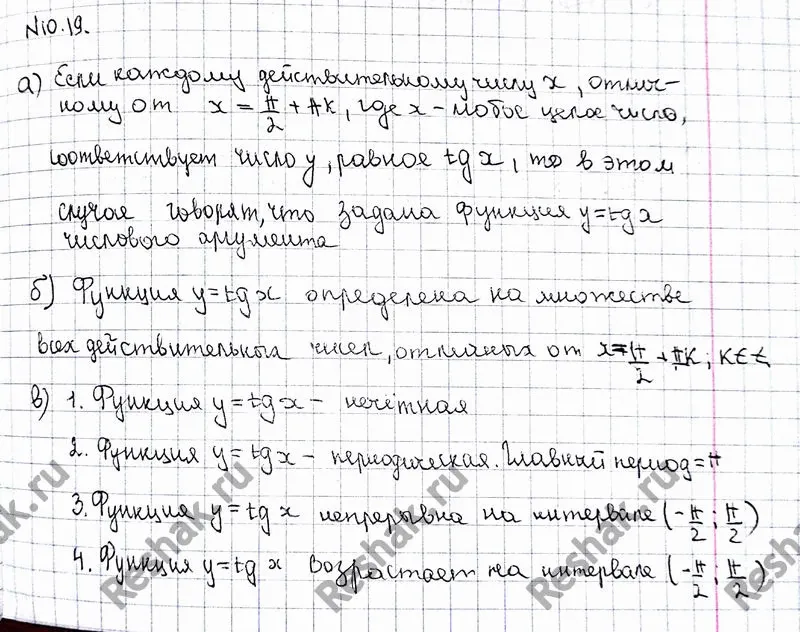 N10.19.
а) Если каждому действительному числу x, отлич-
ному от x = π/2 + πк, где x - любое целое число,
соответствует число y, равное tg x, то в этом
случае говорят, что задана функция y=tg x
числового аргумента
б) Функция y=tg x определена на множестве
всех действительных чисел, отличных от x=π/2 + πк; к∈Z
в) 1. Функция y=tg x - нечётная
2. Функция y=tg x - периодическая. Главный период=π
3. Функция y=tg x непрерывна на интервале (-π/2; π/2)
4. Функция y=tg x возрастает на интервале (-π/2; π/2)
Reshak.ru
Reshak.ru
Reshak.ru
Reshak.ru
Reshak.ru